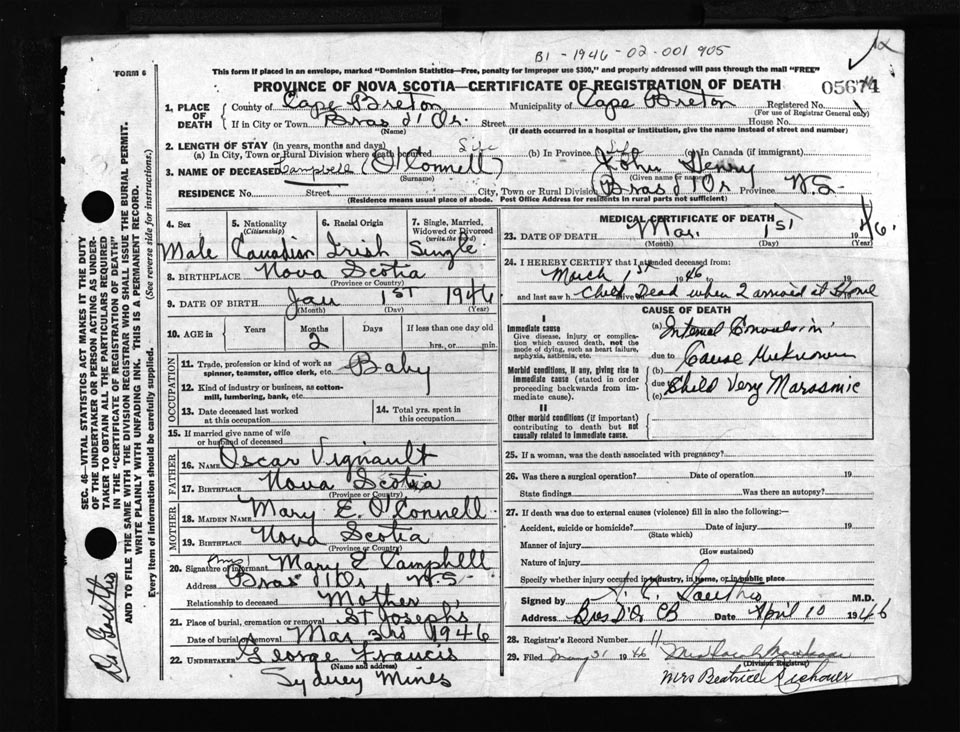 B1-1946-02-001905
FORM 6
This form if placed in an envelope, marked "Dominion Statistics—Free, penalty for improper use $300," and properly addressed will pass through the mail "FREE"
PROVINCE OF NOVA SCOTIA—CERTIFICATE OF REGISTRATION OF DEATH
05674
1. PLACE OF DEATH County of Cape Breton Municipality of Cape Breton Registered No.
(For use of Registrar General only)
If in City or Town Bras d'Or Street House No.
(Name) (If death occurred in a hospital or institution, give the name instead of street and number)
2. LENGTH OF STAY (in years, months and days)
(a) In City, Town or Rural Division where death occurred Life (b) In Province Life (c) In Canada (if immigrant)
3. NAME OF DECEASED Campbell (O'Connell) John Henry
(Surname) (Given name or names)
RESIDENCE No. Street City, Town or Rural Division Bras d'Or Province N.S.
(Residence means usual place of abode. Post Office Address for residents in rural parts not sufficient)
4. Sex 5. Nationality (Citizenship) 6. Racial Origin 7. Single, Married, Widowed or Divorced (write the word)
Male Canadian Irish Single
8. BIRTHPLACE Nova Scotia
(Province or Country)
9. DATE OF BIRTH Jan 1st 1946
(Month) (Day) (Year)
10. AGE in Years Months Days If less than one day old
2 hrs., or min.
OCCUPATION
11. Trade, profession or kind of work as spinner, teamster, office clerk, etc. Baby
12. Kind of industry or business, as cotton-mill, lumbering, bank, etc.
13. Date deceased last worked at this occupation 14. Total yrs. spent in this occupation
15. If married give name of wife or husband of deceased
FATHER
16. NAME Oscar Vignault
17. BIRTHPLACE Nova Scotia
(Province or Country)
MOTHER
18. MAIDEN NAME Mary E. O'Connell
19. BIRTHPLACE Nova Scotia
(Province or Country)
20. Signature of informant Mrs Mary E Campbell
Address Bras d'Or N.S.
Relationship to deceased Mother
21. Place of burial, cremation or removal St Josephs
Date of burial or removal Mar 3rd 1946
22. UNDERTAKER George Francis
(Name and address)
Sydney Mines
MEDICAL CERTIFICATE OF DEATH
23. DATE OF DEATH Mar. 1st 1946.
(Month) (Day) (Year)
24. I HEREBY CERTIFY that I attended deceased from:
March 1st 1946 to 19
and last saw h alive on Child Dead when I arrived at Home 19
CAUSE OF DEATH
I
Immediate cause
Give disease, injury or complication which caused death, not the mode of dying, such as heart failure, asphyxia, asthenia, etc.
(a) Convulsion
due to Cause Unknown
Morbid conditions, if any, giving rise to immediate cause (stated in order proceeding backwards from immediate cause).
(b)
due to
(c) Child Very Marasmic
II
Other morbid conditions (if important) contributing to death but not causally related to immediate cause.
25. If a woman, was the death associated with pregnancy?
26. Was there a surgical operation? Date of operation 19
State findings Was there an autopsy?
27. If death was due to external causes (violence) fill in also the following:
Accident, suicide or homicide? Date of injury 19
(State which)
Manner of injury
(How sustained)
Nature of injury
Specify whether injury occurred in industry, in home, or in public place
Signed by M.D.
Address Bras D'Or CB Date April 10 1946
28. Registrar's Record Number 11
29. Filed May 31 1946
(Division Registrar)
Mrs Beatrice
SEC. 46—VITAL STATISTICS ACT MAKES IT THE DUTY OF THE UNDERTAKER OR PERSON ACTING AS UNDERTAKER TO OBTAIN ALL THE PARTICULARS REQUIRED IN THE "CERTIFICATE OF REGISTRATION OF DEATH" AND TO FILE THE SAME WITH THE DIVISION REGISTRAR WHO SHALL ISSUE THE BURIAL PERMIT.
WRITE PLAINLY WITH UNFADING INK. THIS IS A PERMANENT RECORD.
Every item of information should be carefully supplied. (See reverse side for instructions.)